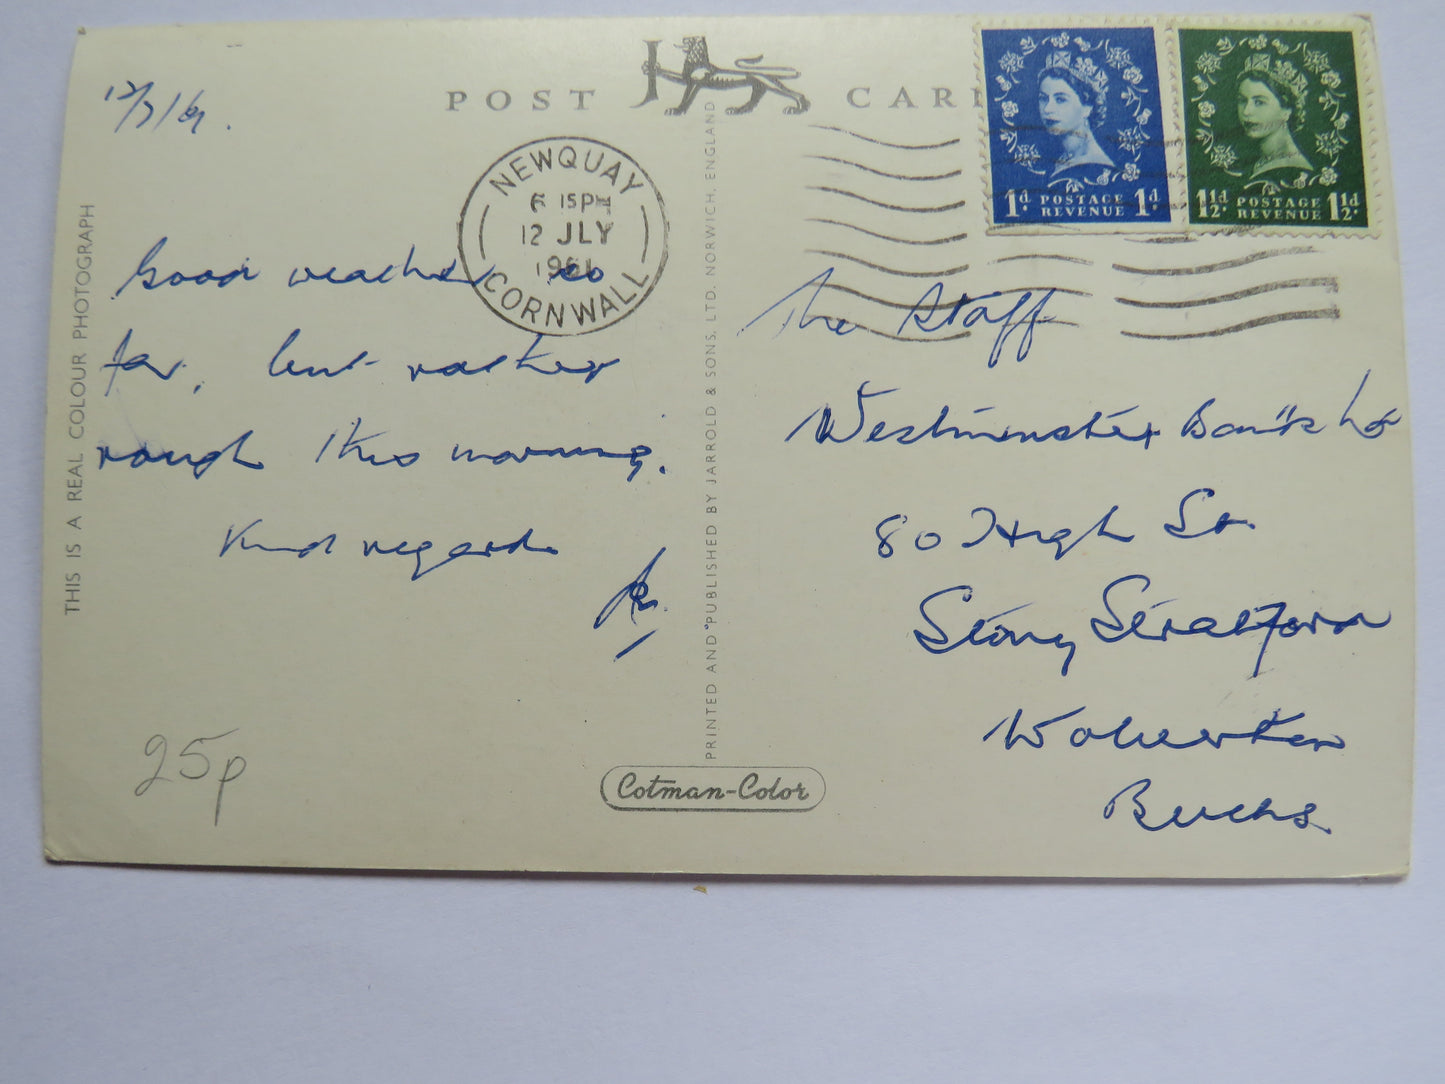 POST CARD
12/7/61.
NEWQUAY
6 15PM
12 JLY
1961
CORNWALL
1d. POSTAGE 1d.
REVENUE
1½d. POSTAGE 1½d.
REVENUE
Good weather so
far, but rather
rough this morning.
Kind regards
The Staff
Westminster Bank Ltd
80 High St.
Stony Stratford
Wolverton
Bucks.
THIS IS A REAL COLOUR PHOTOGRAPH
PRINTED AND PUBLISHED BY JARROLD & SONS, LTD. NORWICH, ENGLAND
Cotman-Color
25p